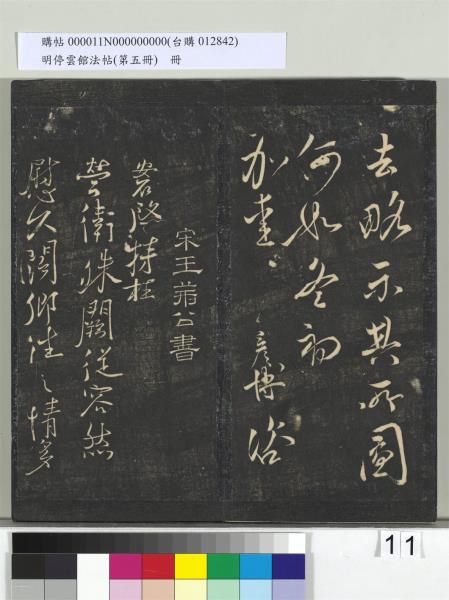 購帖 000011N000000000(台購 012842)
明停雲館法帖(第五冊) 冊
去略示其所圖
何如冬初
加重
彥博 咨
宋王荊公書
安石啓特枉
營衛殊闕從容然
慰久闊仰往之情多
11